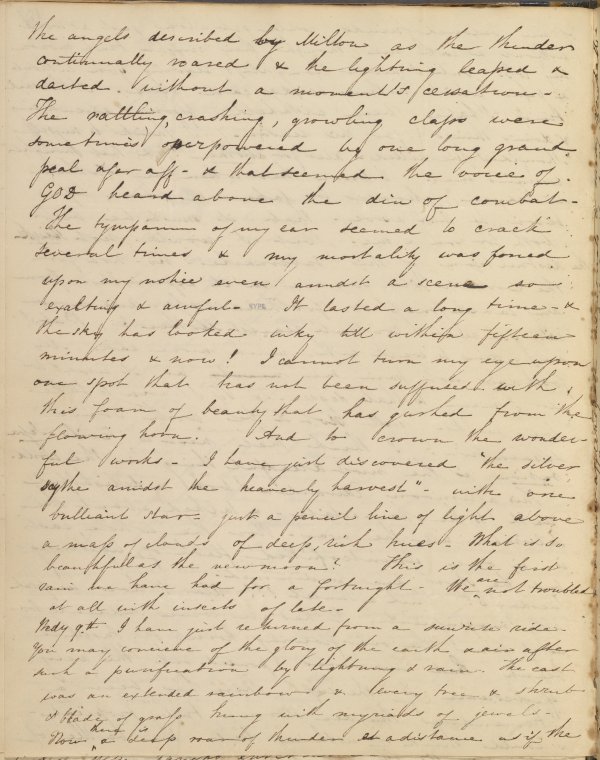 the angels described by Milton as the thunder
continually roared & the lightning leaped &
darted without a moment's cessation -
The rattling, crashing, growling claps were
sometimes overpowered by one long grand
peal afar off - & that seemed the voice of
GOD heard above the din of combat -
The tympanum of my ear seemed to crack
several times & my mortality was forced
upon my notice even amidst a scene so
exalting & awful - It lasted a long time - &
the sky has looked inky till within fifteen
minutes & now! I cannot turn my eye upon
one spot that has not been suffused with
this foam of beauty that has gushed from the
flowing horn. And to crown the wonder-
ful works - I have just discovered "the silver
scythe amidst the heavenly harvest" - with one
brilliant star - just a pencil line of light above
a mass of clouds of deep, rich hues - What is so
beautiful as the new moon! This is the first
rain we have had for a fortnight. We are not troubled
at all with insects of late -
Wedy 9th I have just returned from a sunrise ride.
You may conceive of the glory of the earth & air after
such a purification by lightning & rain. The east
was an extended rainbow & every tree & shrub
& blade of grass hung with myriads of jewels -
Now there is a deep roar of thunder at a distance as if the